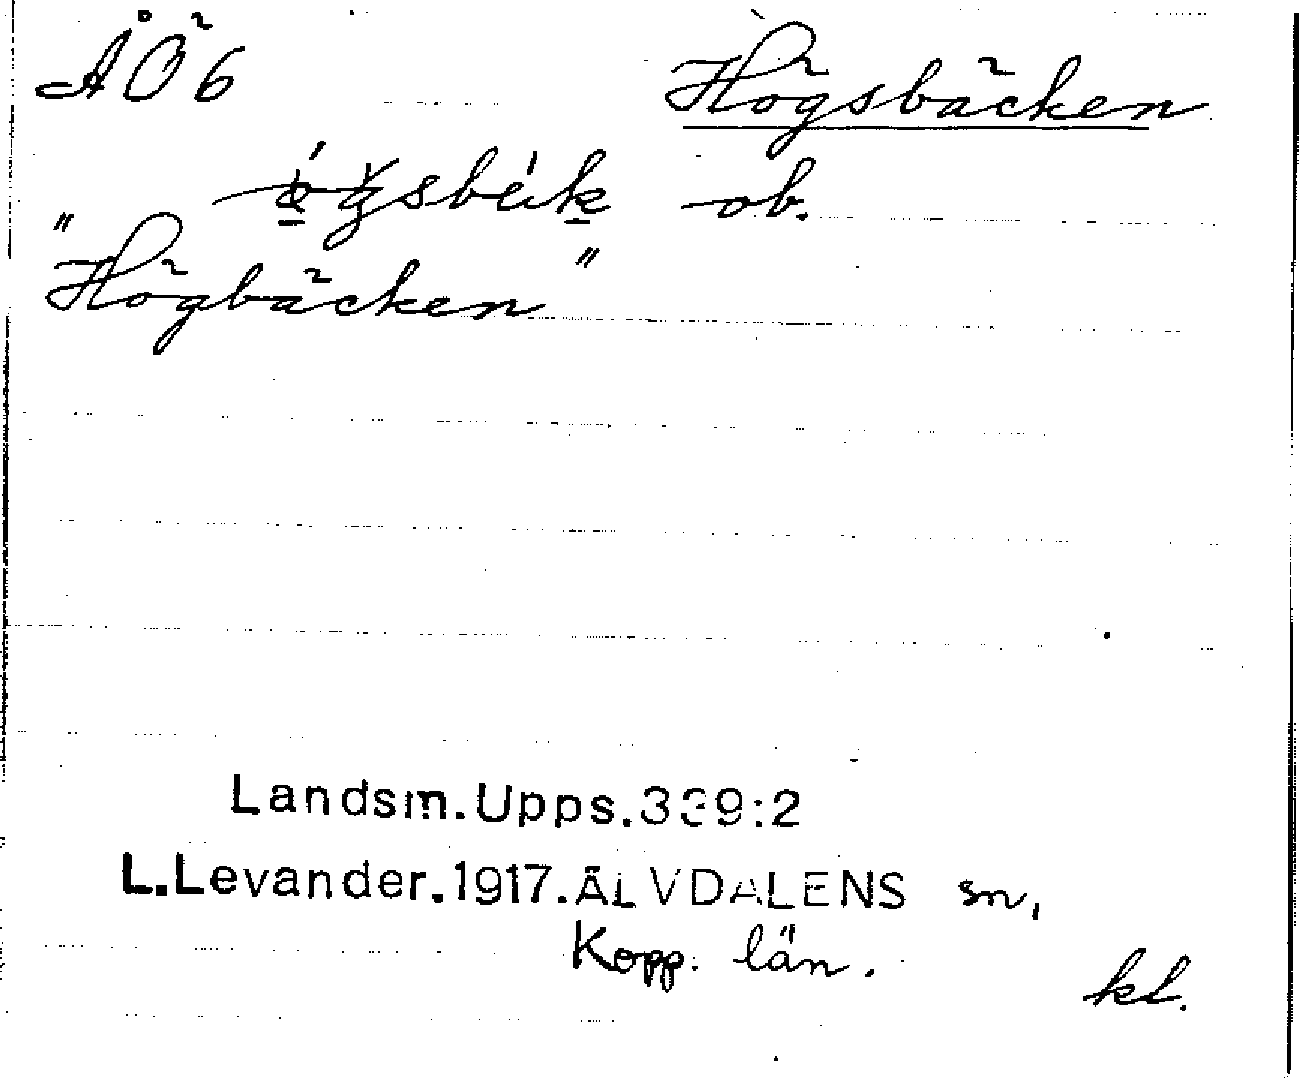 ÅÖ6 Högsbäcken
ob.
"Högbäcken"
Landsm.Upps.339:2
L.Levander.1917.ÄLVDALENS sn,
Kopp. län.
kl.